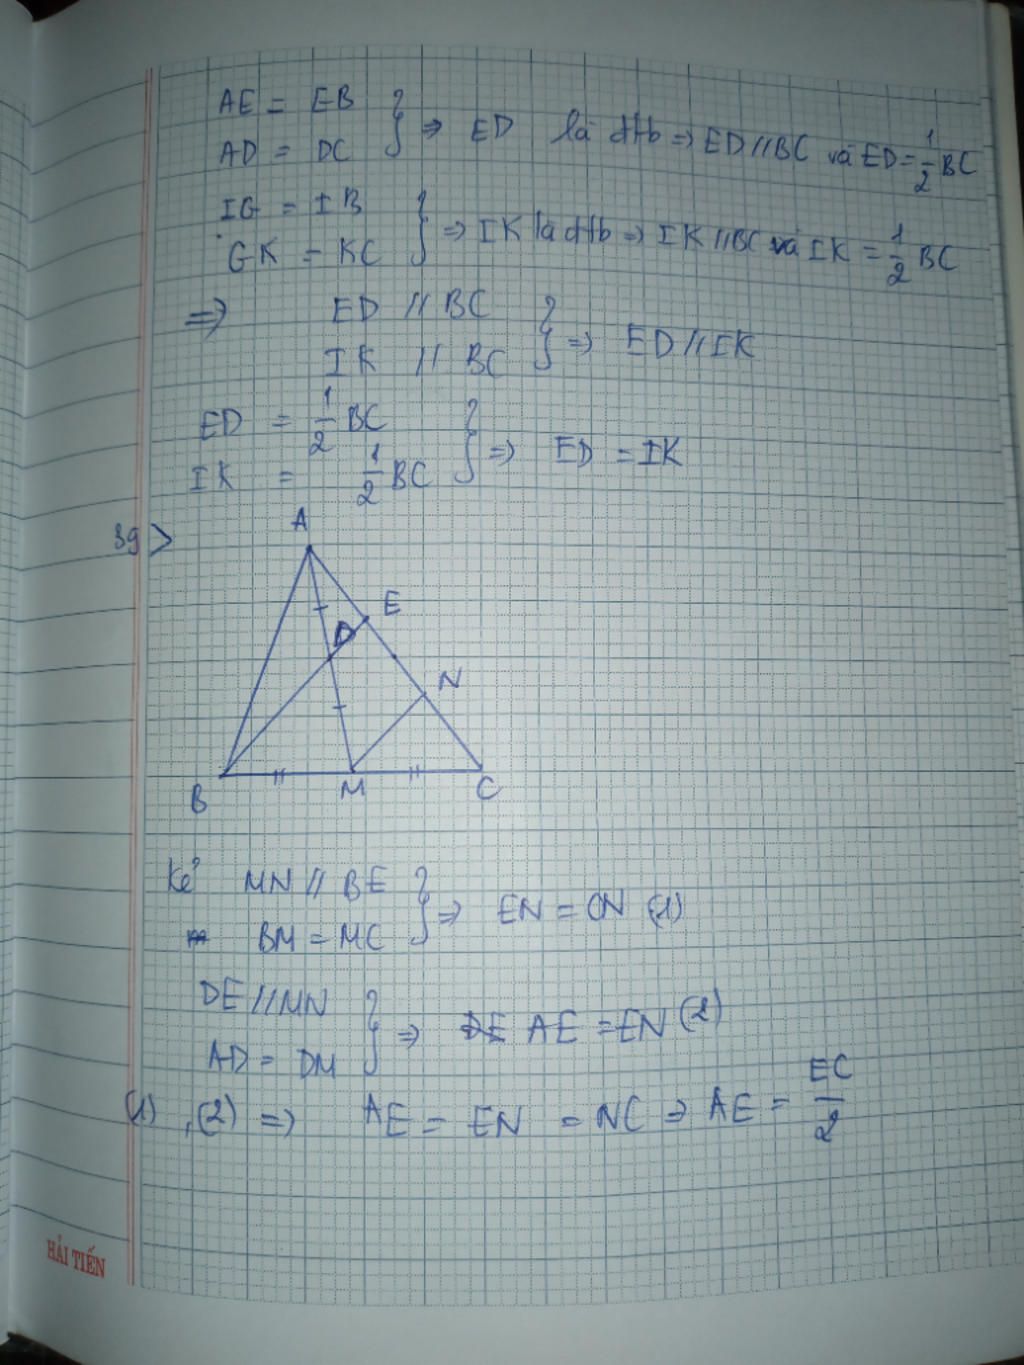 AE = EB
AD = DC } => ED là đtb => ED // BC và ED = 1/2 BC
IG = IB
GK = KC } => IK là đtb => IK // BC và IK = 1/2 BC
=> ED // BC
IK // BC } => ED // IK
ED = 1/2 BC
IK = 1/2 BC } => ED = IK
39>
A
E
D
N
B M C
Kẻ MN // BE
BM = MC } => EN = CN (1)
DE // MN
AD = DM } => AE = EN (2)
(1), (2) => AE = EN = NC => AE = EC/2
HẢI TIẾN